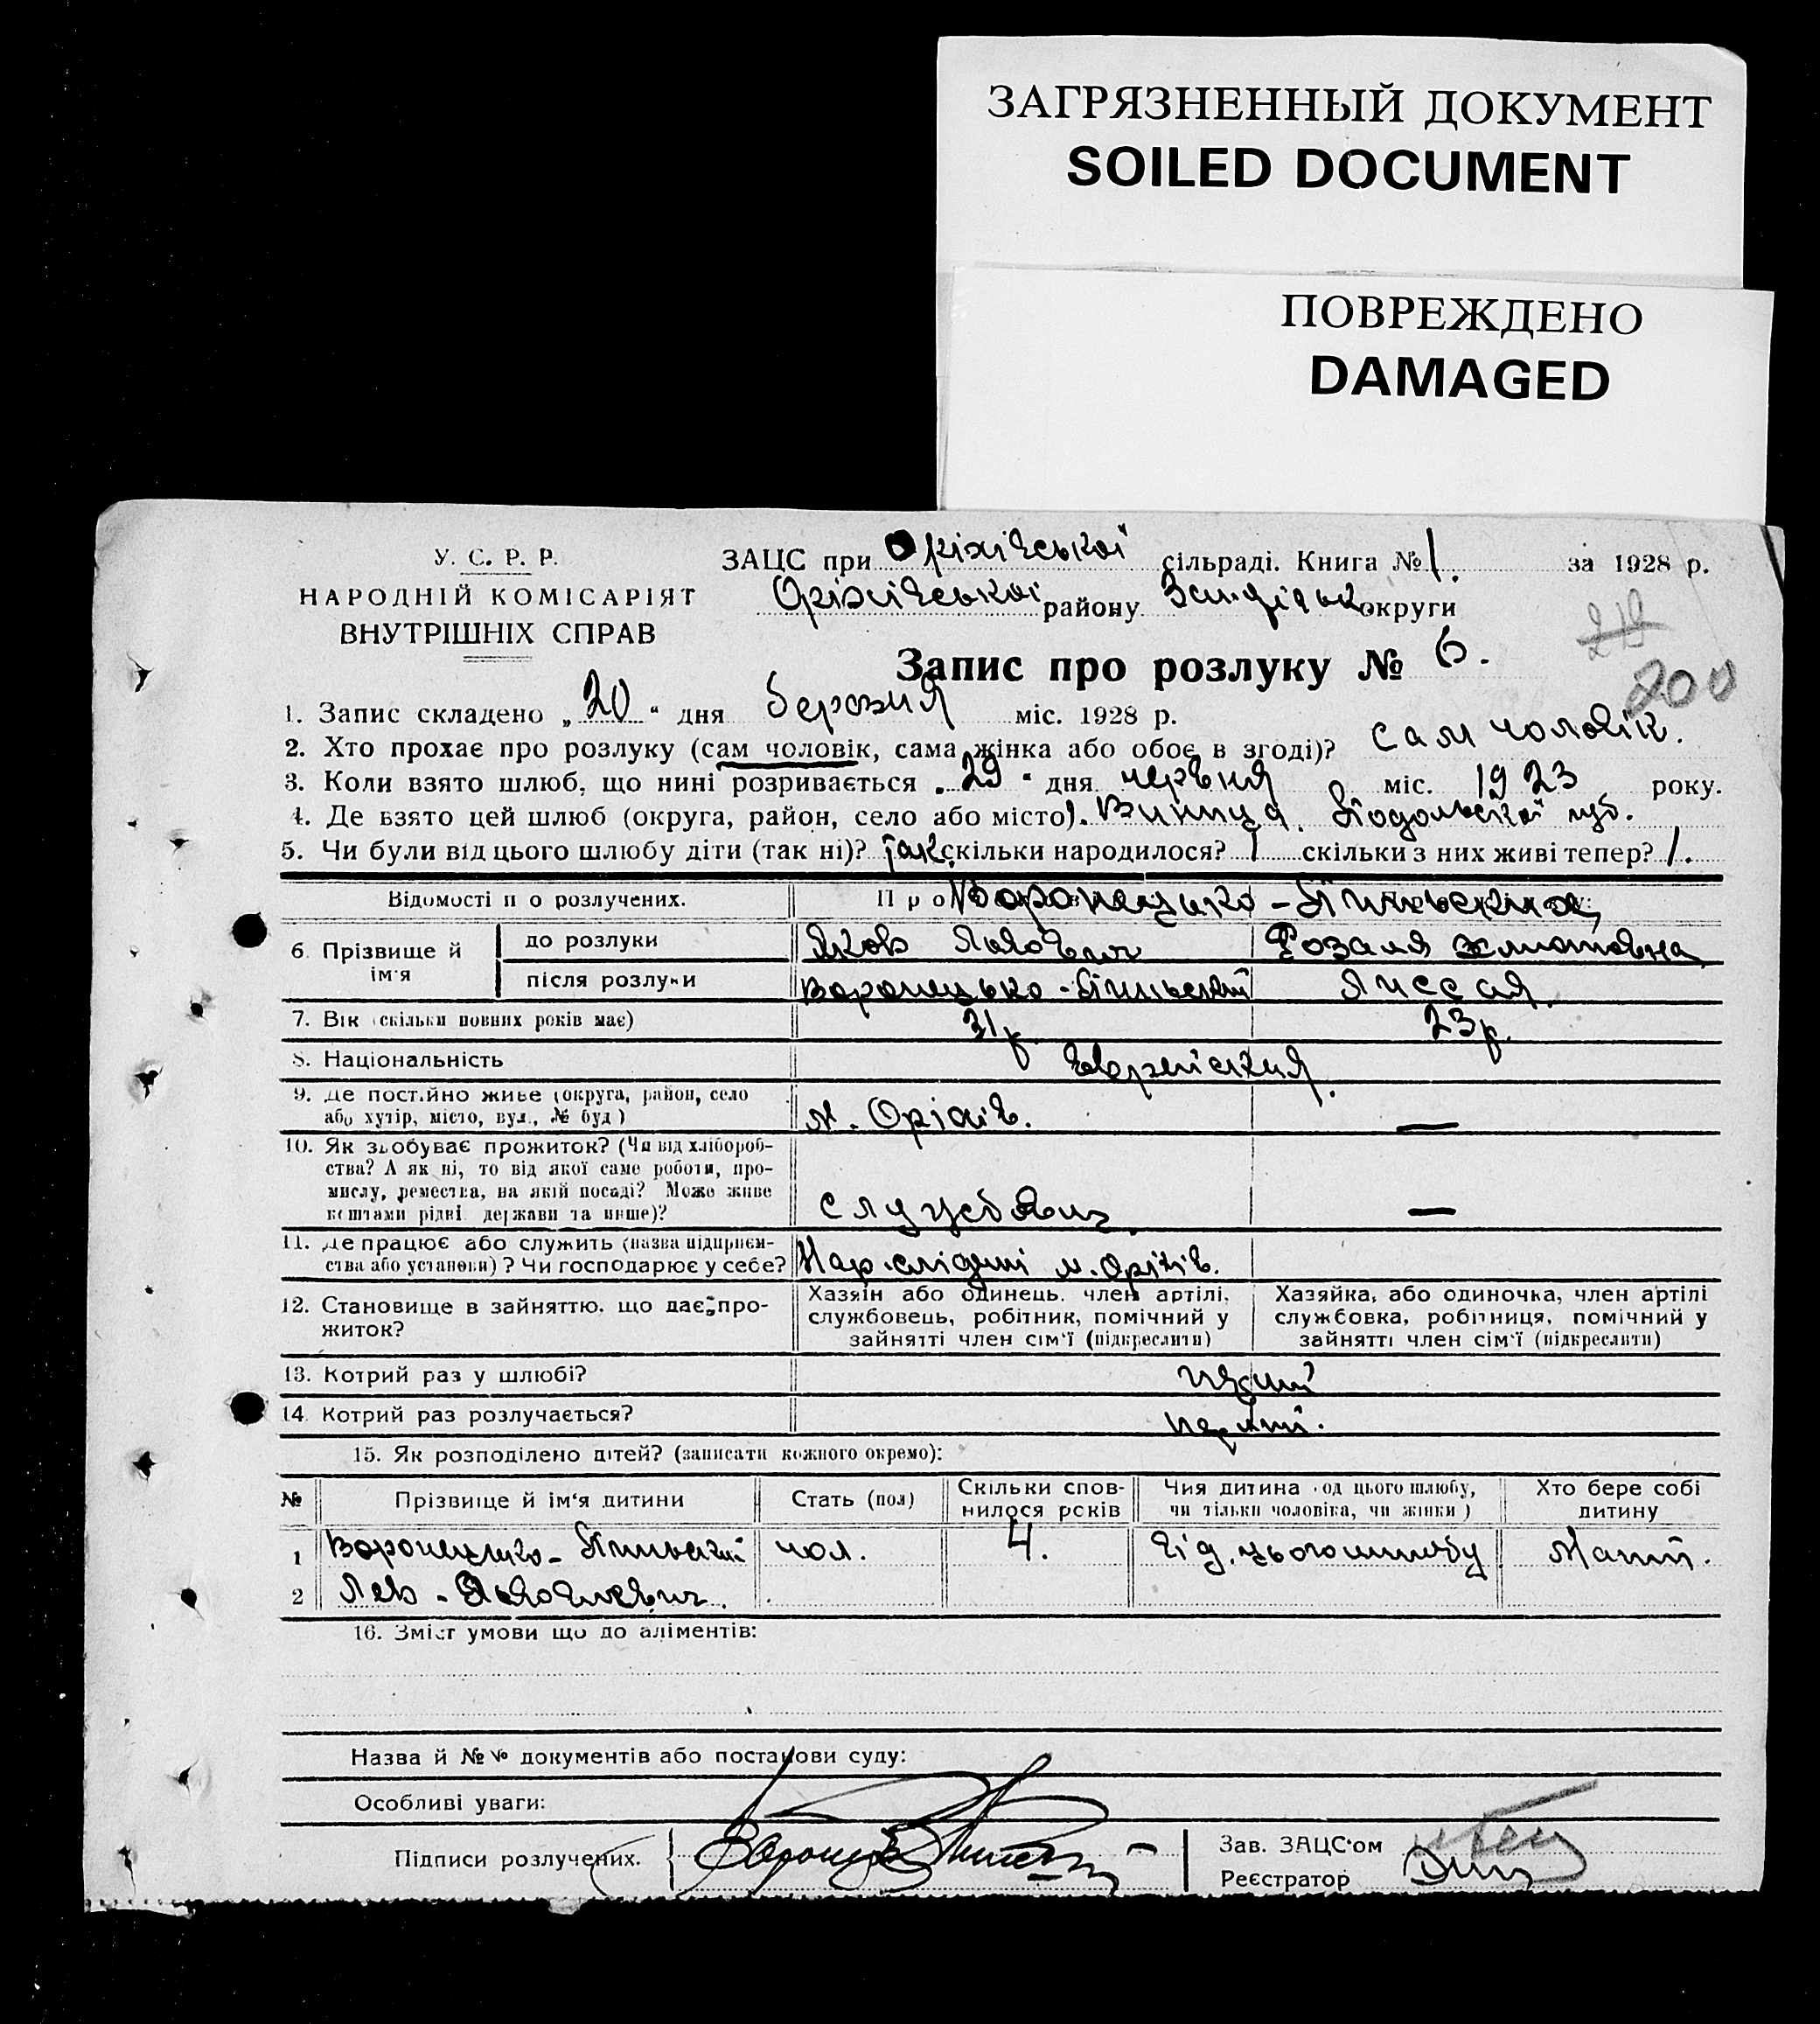 ЗАГРЯЗНЕННЫЙ ДОКУМЕНТ
SOILED DOCUMENT
ПОВРЕЖДЕНО
DAMAGED
У. С. Р. Р.
НАРОДНІЙ КОМІСАРІЯТ
ВНУТРІШНІХ СПРАВ
ЗАЦС при Оріхівської сільраді. Книга № 1. за 1928 р.
Оріхівської району округи
Запис про розлуку № 6.
200
1. Запис складено „20“ дня березня міс. 1928 р.
2. Хто прохає про розлуку (сам чоловік, сама жінка або обоє в згоді)? сам чоловік.
3. Коли взято шлюб, що нині розривається „29“ дня червня міс. 1923 року.
4. Де взято цей шлюб (округа, район, село або місто). Винница, Подольської губ.
5. Чи були від цього шлюбу діти (так ні)? так скільки народилося? 1 скільки з них живі тепер? 1.
Відомості п о розлучених.
6. Прізвище й ім'я
до розлуки Яков Розалія
після розлуки Воронецько-
7. Вік (скільки повних років має) 31 р. 23 р.
8. Національність
9. Де постійно живе (округа, район, село
або хутір, місто, вул., № буд) м. Оріхів. —
10. Як здобуває прожиток? (Чи від хлібороб-
ства? А як ні, то від якої саме роботи, про-
мислу, ремества, на якій посаді? Може живе
коштами рідні держави та инше)? службович —
11. Де працює або служить (назва підприєм-
ства або установи)? Чи господарює у себе? Нар. слідчий м. Оріхів.
12. Становище в зайняттю, що дає про-
житок?
Хазяїн або одинець, член артілі,
службовець, робітник, помічний у
зайнятті член сім'ї (підкреслити)
Хазяйка, або одиночка, член артілі
службовка, робітниця, помічний у
зайнятті член сім'ї (підкреслити)
13. Котрий раз у шлюбі?
14. Котрий раз розлучається? перший.
15. Як розподілено дітей? (записати кожного окремо):
№ Прізвище й ім'я дитини Стать (пол) Скільки спов-
нилося років Чия дитина (од цього шлюбу,
чи тільки чоловіка, чи жінки) Хто бере собі
дитину
1 Воронецько- чол. 4. від цього шлюбу Мати.
2 Лев
16. Зміст умови що до аліментів:
Назва й №№ документів або постанови суду:
Особливі уваги:
Підписи розлучених.
Зав. ЗАЦС'ом
Реєстратор